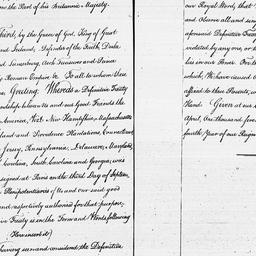 on the Part of his Britannic Majesty.
Third, by the Grace of God, King of Great
and Ireland, Defender of the Faith, Duke
and Lunenburg, Arch Treasurer and Prince
Roman Empire &c. To all whom these
Greeting. Whereas a Definitive Treaty
between Us and our Good Friends the
America, Vizt. New Hampshire, Massachusetts
Island and Providence Plantations, Connecticut
Jersey, Pennsylvania, Delaware, Maryland
Carolina, South Carolina and Georgia, was
signed at Paris on the third Day of
Plenipotentiaries of Us and our said good
and respectively authorized for that purpose,
Treaty is in the Form and Words following
Here insert it)
having seen and considered the Definitive
our Royal Word, that
and Observe all and
aforesaid Definitive
violated by any one, or
lies in our Power. For
which, We have caused
affixed to these Presents,
Hand. Given at our
April, One thousand
fourth Year of our Reign